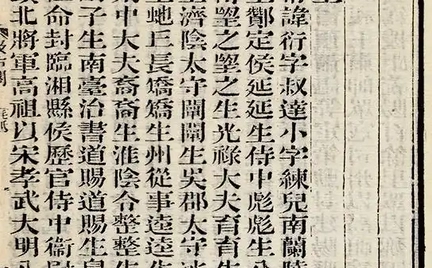 諱衍字叔達小字練兒南蘭陵
酇定侯延延生侍中彪彪生公
望之望之生光祿大夫育育生
濟陰太守闡闡生吳郡太守冰
蛇丘長矯矯生州從事逵逵生
中大夫裔裔生淮陰令整整生
子生南臺治書道賜道賜生皇
命封臨湘縣侯歷官侍中衛尉
北將軍高祖以宋孝武大明八